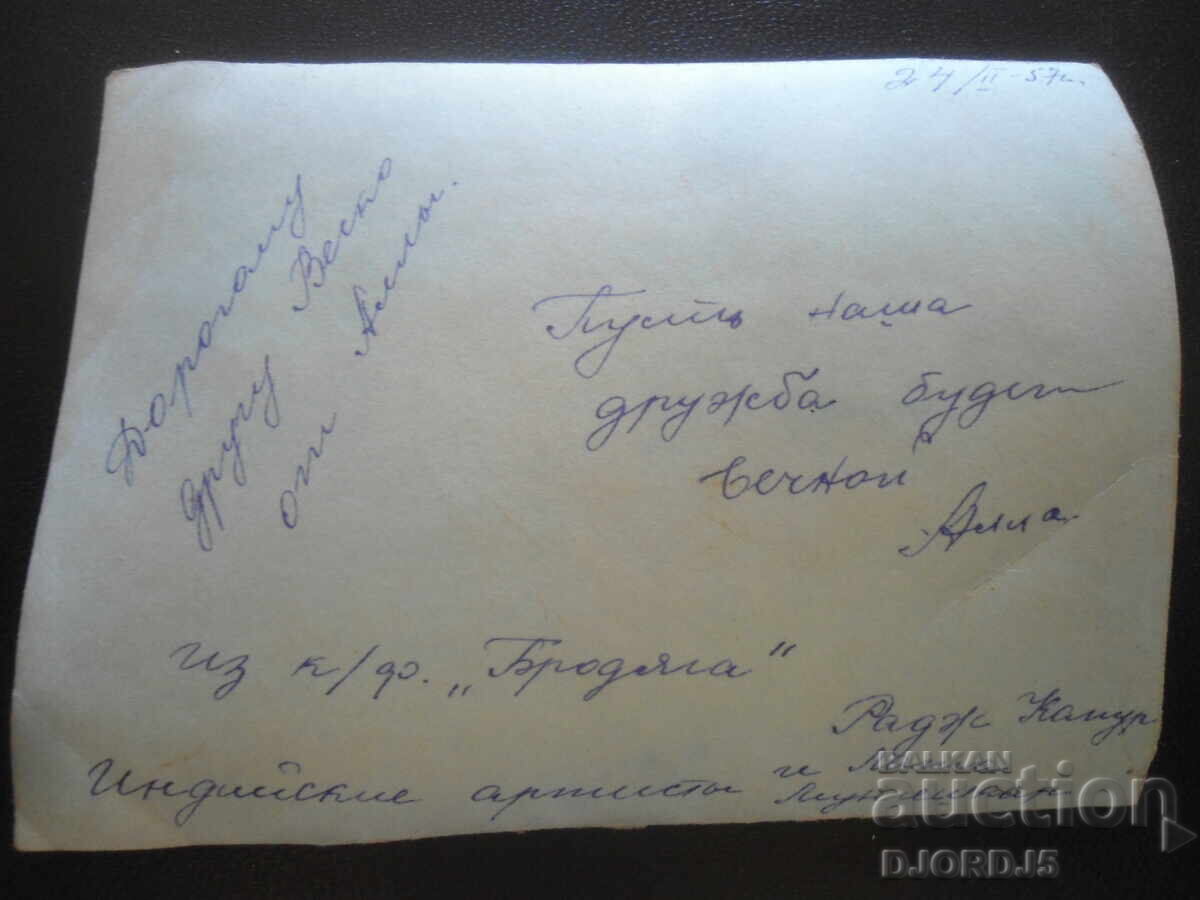 24/II-57г.
Дорогому
другу Веско
от Аллы.
Пусть наша
дружба будет
вечной
Алла
из к/ф. „Бродяга"
Индийские артисты
Радж Капур
и
BALKAN
auction
DJORDJ5